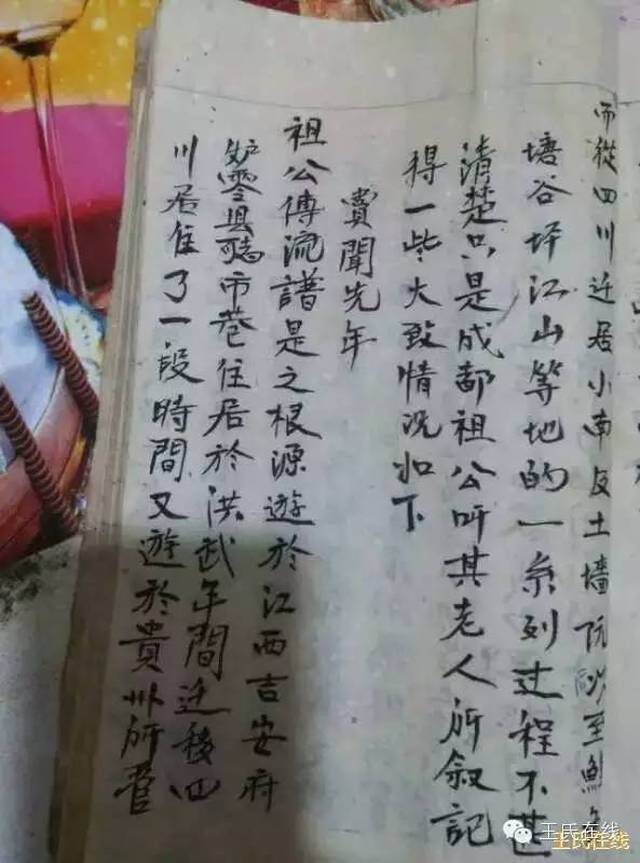 而從四川迁居小南反土墙阮以至鱼
塘谷坪江山等地的一系列过程不甚
清楚只是成都祖公听其老人所叙記
得一些大致情况如下
賞聞先年
祖公傳流譜是之根源遊於江西吉安府
零县市巷住居於洪武年間迁移四
川居住了一段時間又遊於貴州所管
王氏在线
王氏在线